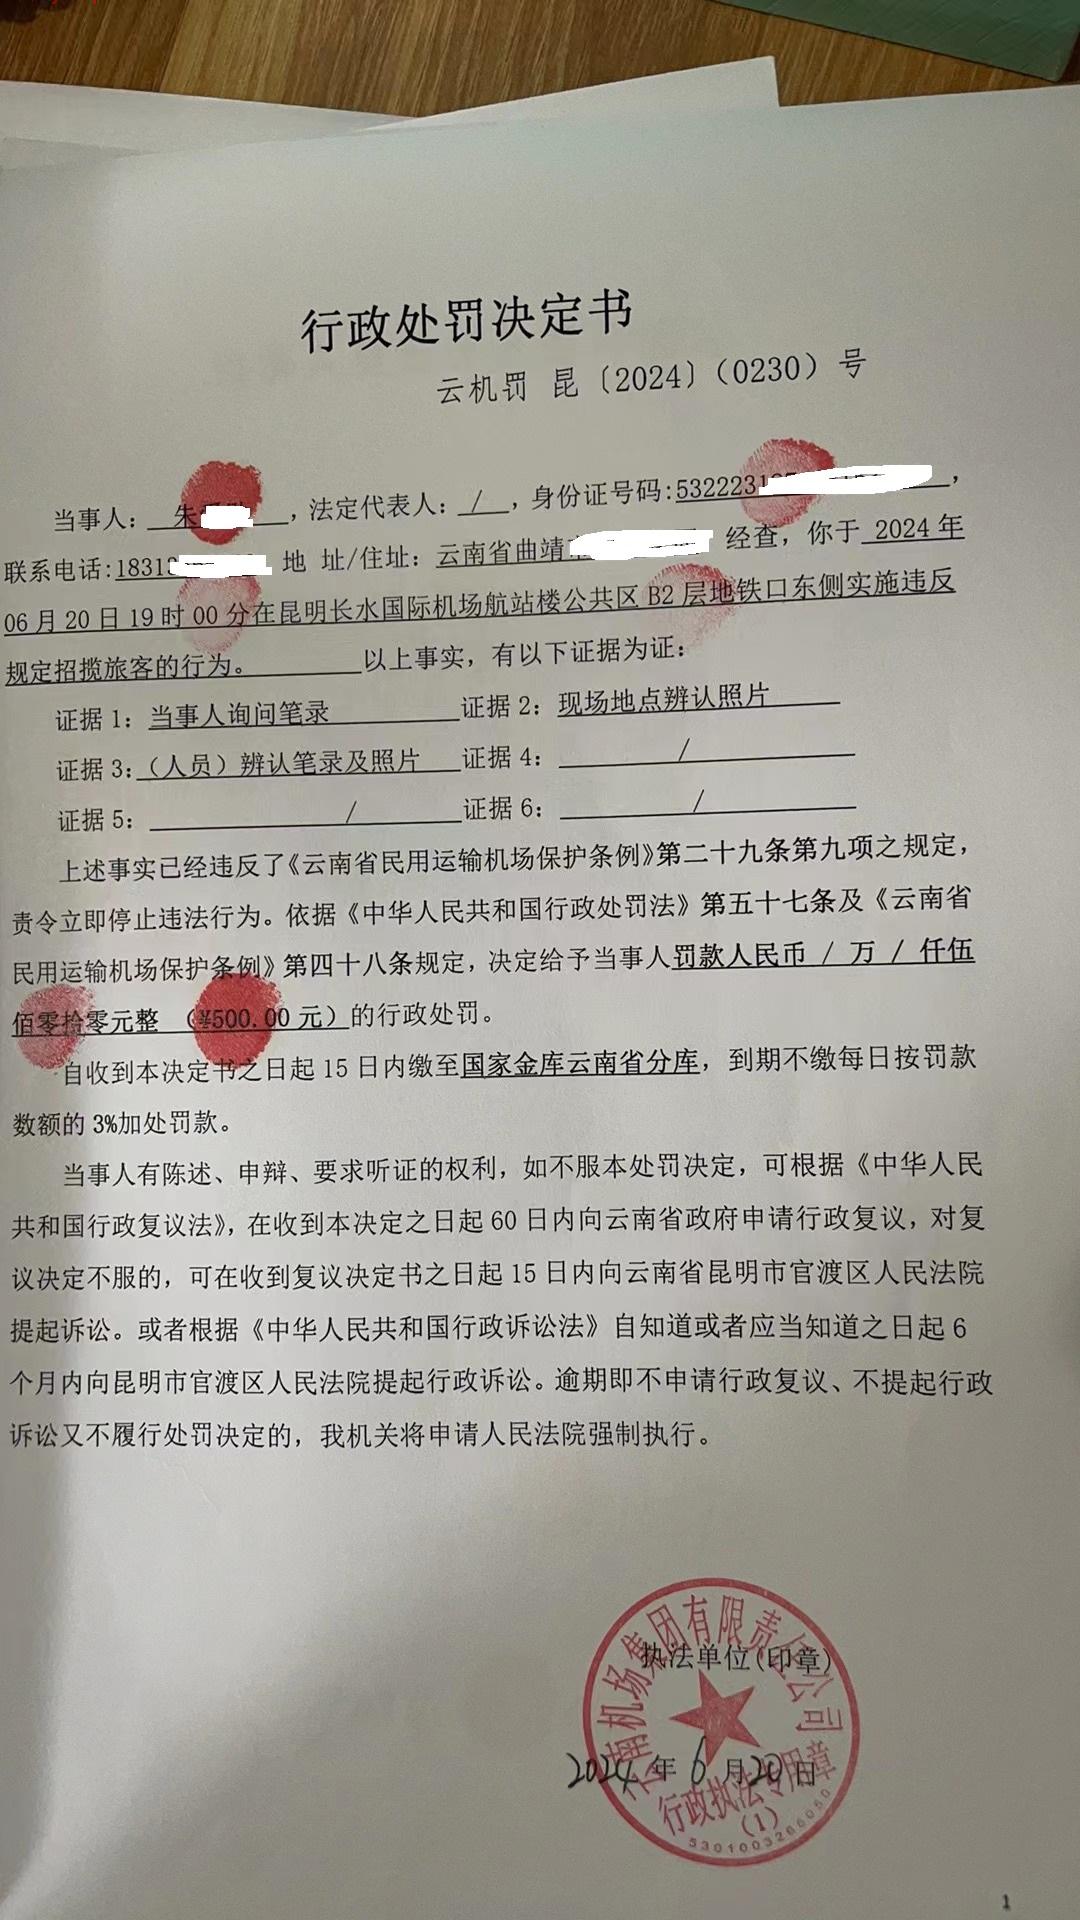 行政处罚决定书
云机罚 昆〔2024〕（0230）号
当事人：朱，法定代表人：/，身份证号码:532223，
联系电话:1831 地 址/住址：云南省曲靖 经查，你于 2024年
06月20日19时00分在昆明长水国际机场航站楼公共区B2层地铁口东侧实施违反
规定招揽旅客的行为。 以上事实，有以下证据为证：
证据1：当事人询问笔录 证据2：现场地点辨认照片
证据3：（人员）辨认笔录及照片 证据4： /
证据5： / 证据6： /
上述事实已经违反了《云南省民用运输机场保护条例》第二十九条第九项之规定，
责令立即停止违法行为。依据《中华人民共和国行政处罚法》第五十七条及《云南省
民用运输机场保护条例》第四十八条规定，决定给予当事人罚款人民币 / 万 / 仟伍
佰零拾零元整 （¥500.00元）的行政处罚。
自收到本决定书之日起15日内缴至国家金库云南省分库，到期不缴每日按罚款
数额的3%加处罚款。
当事人有陈述、申辩、要求听证的权利，如不服本处罚决定，可根据《中华人民
共和国行政复议法》，在收到本决定之日起60日内向云南省政府申请行政复议，对复
议决定不服的，可在收到复议决定书之日起15日内向云南省昆明市官渡区人民法院
提起诉讼。或者根据《中华人民共和国行政诉讼法》自知道或者应当知道之日起6
个月内向昆明市官渡区人民法院提起行政诉讼。逾期即不申请行政复议、不提起行政
诉讼又不履行处罚决定的，我机关将申请人民法院强制执行。
云南机场集团有限责任公司
执法单位(印章)
2024年6月20日
行政执法专用章
(1)
5301003266050
1